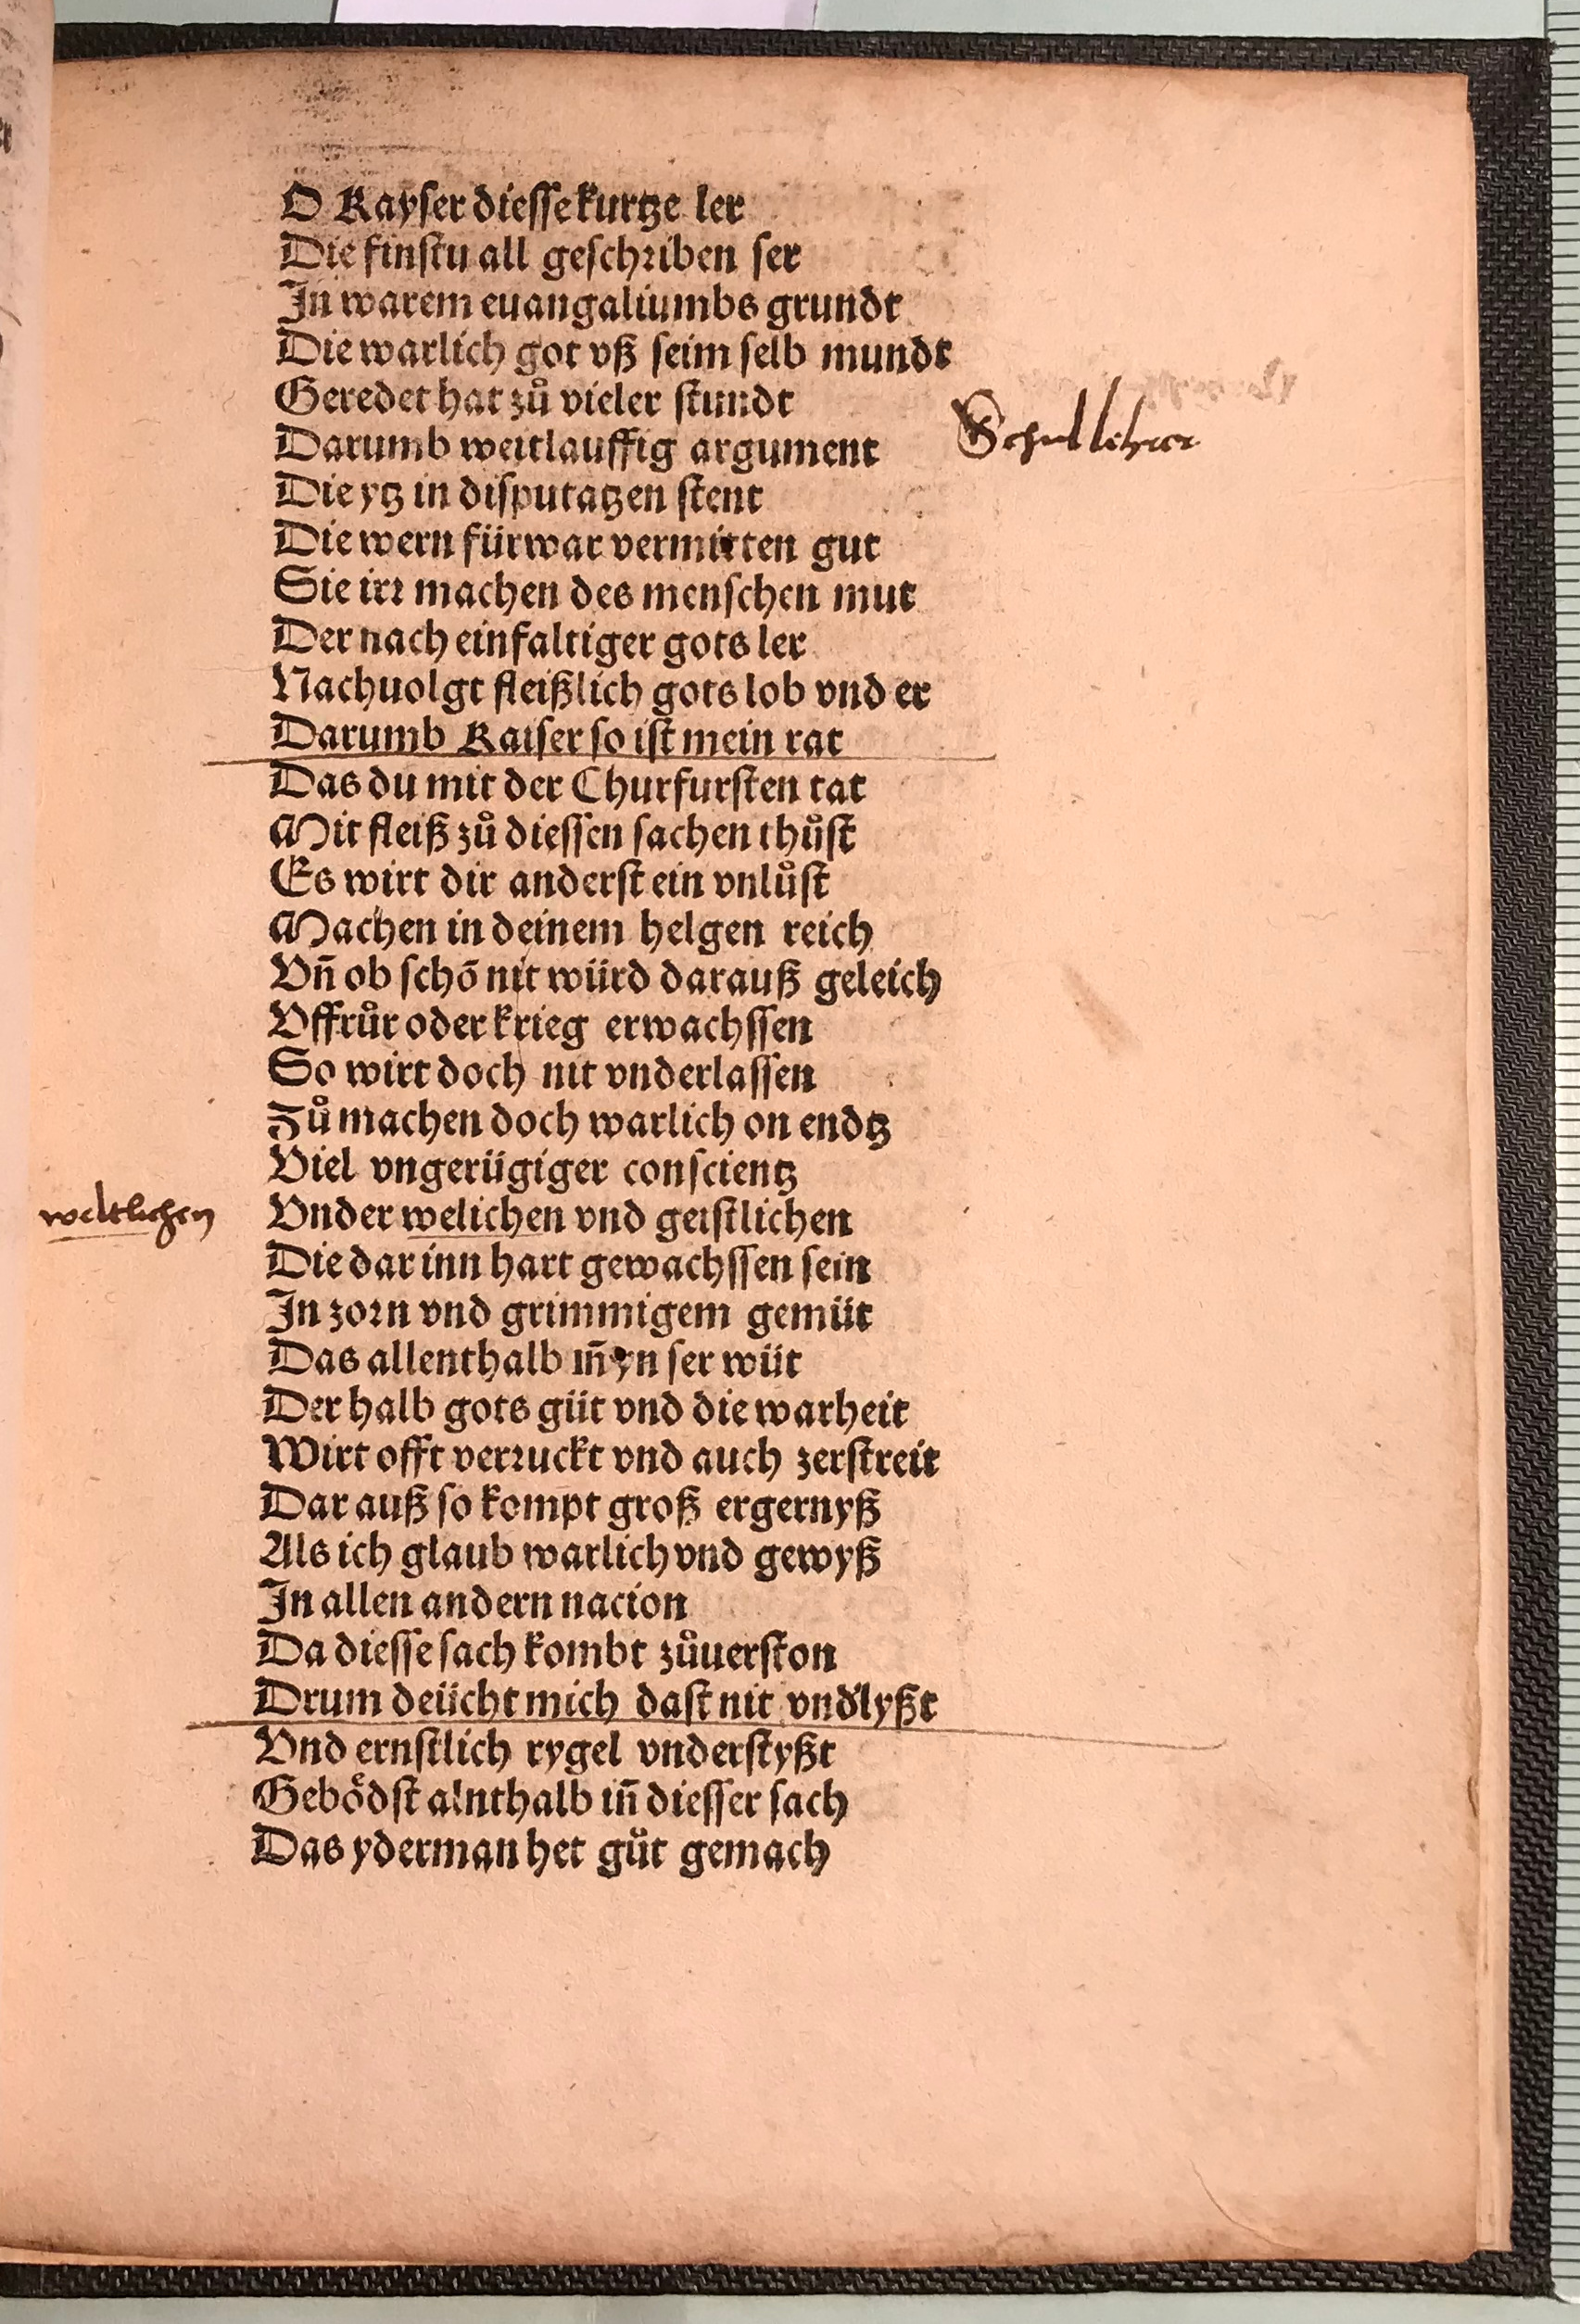 O Kayser diesse kurtze ler
Die finstu all geschriben ser
In warem euangaliumbs grundt
Die warlich got vß seim selb mundt
Geredet hat zů vieler stundt
Darumb weitlauffig argument
Schullehrer
Die ytz in disputatzen stent
Die wern fürwar vermitten gut
Sie irr machen des menschen mut
Der nach einfaltiger gots ler
Nachuolgt fleißlich gots lob vnd er
Darumb Kaiser so ist mein rat
Das du mit der Churfursten tat
Mit fleiß zů diessen sachen thůst
Es wirt dir anderst ein vnlůst
Machen in deinem helgen reich
Vn̄ ob schō nit würd darauß geleich
Vffrůr oder krieg erwachssen
So wirt doch nit vnderlassen
Zů machen doch warlich on endtz
Viel vngerügiger conscientz
weltlichen
Vnder welichen vnd geistlichen
Die dar inn hart gewachssen sein
In zorn vnd grimmigem gemüt
Das allenthalb in̄ yn ser wüt
Der halb gots güt vnd die warheit
Wirt offt verruckt vnd auch zerstreit
Dar auß so kompt groß ergernyß
Als ich glaub warlich vnd gewyß
In allen andern nacion
Da diesse sach kombt zůuerston
Drum deücht mich dast nit vnd'lyßt
Vnd ernstlich rygel vnderstyßt
Geboͤdst alnthalb in̄ diesser sach
Das yderman het gůt gemach